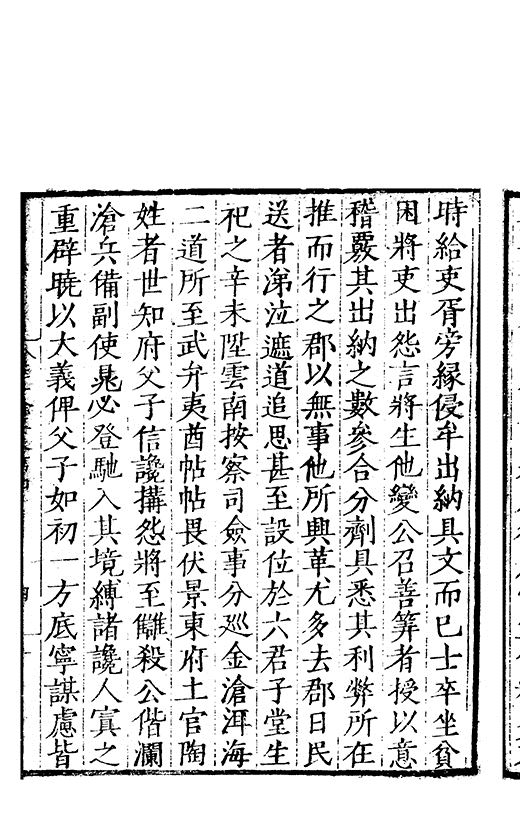 時給吏胥旁縁侵牟出納具文而已士卒坐貧
困將吏出怨言將生他變公召善筭者授以意
稽覈其出納之數參合分劑具悉其利弊所在
推而行之郡以無事他所興革尤多去郡日民
送者涕泣遮道追思甚至設位於六君子堂生
祀之辛未陞雲南按察司僉事分巡金滄洱海
二道所至武弁夷酋帖帖畏伏景東府土官陶
姓者世知府父子信讒搆怨將至讎殺公偕瀾
滄兵備副使晁必登馳入其境縛諸讒人寘之
重辟曉以大義俾父子如初一方底寧謀慮皆